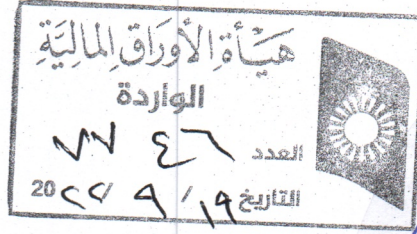 هَيْأَةِ الأَوْرَاقِ المَالِيَّةِ
الواردة
العدد ٧٧ ٤٦
التاريخ ١٩ / ٩ / 20٢٢